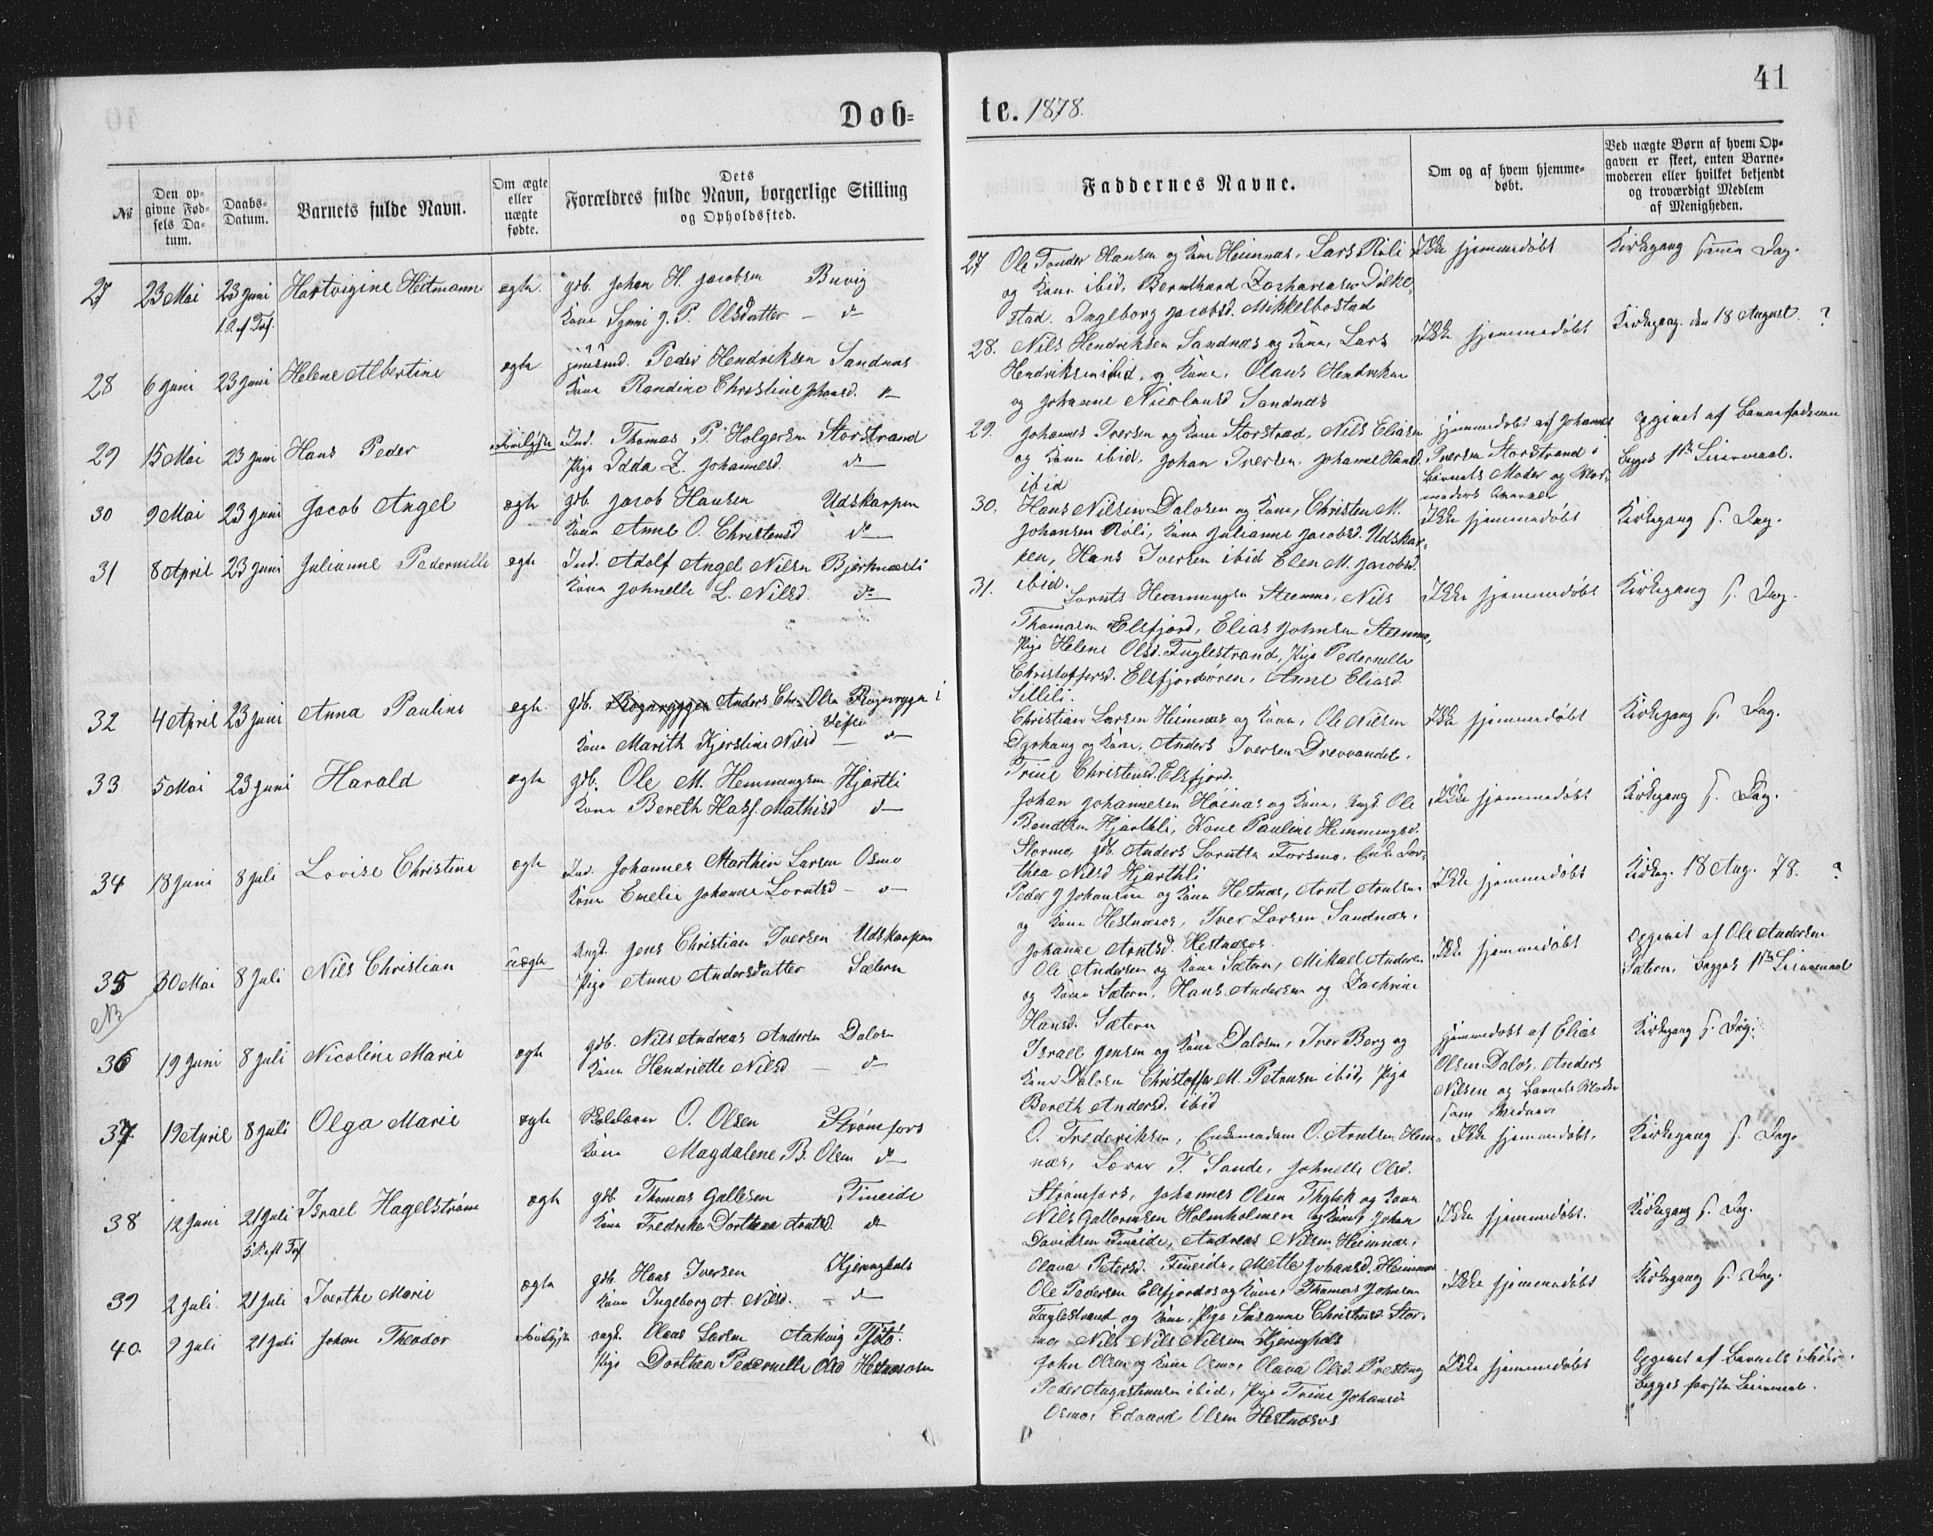 41
Døb-
te. 1878.
№
Den op-
givne Fød-
sels Da-
tum.
Daabs-
Datum.
Barnets fulde Navn.
Om ægte
eller
uægte
fødte.
Dets
Forældres fulde Navn, borgerlige Stilling
og Opholdssted.
27 23 Mai 23 Juni Hartvigine Heitmann ægte gdb. Johan H. Jacobsen Buvig
Kone Synni J. P. Olsdatter — do
28 6 Juni 23 Juni Helene Albertine ægte Peder Hendriksen Sandnæs
Kone Randine Christine Johansd.
29 15 Mai 23 Juni Hans Peder Ind. Thomas P. Holgersen Storstrand
Pige Idda Z. Johannesd. do
30 9 Mai 23 Juni Jacob Angel ægte gdb. Jacob Hansen Udskarpen
Kone Anne O. Christensd do
31 8 April 23 Juni Julianne Pedernille ægte Ind. Adolf Angel Nilsen Bjerknæsli
Kone Johnelle L. Nilsd. do
32 4 April 23 Juni Anna Pauline ægte gdb. Anders Chr. Olsen i
Kone Marith Kjerstine Nilsd — do
33 5 Mai 23 Juni Harald ægte gdb. Ole M. Hemmingsen Hjartli
Kone Bereth Mathisd do
34 18 Juni 8 Juli Lovise Christine ægte Ind. Johannes Marthin Larsen Osmo
Kone Emelie Johanna Lorntsd — do
35 30 Mai 8 Juli Nils Christian uægte Ungk. Jens Christian Iversen Udskarpen
Pige Anne Andersdatter Sætern
NB
36 19 Juni 8 Juli Nicoline Marie ægte gdb. Nils Andreas Andersen Dalosen
Kone Henriette Nilsd — do
37 19 April 8 Juli Olga Marie ægte O. Olsen Strømfors
Kone Magdalene B. Olsen do
38 12 Juni 21 Juli Israel Hagelstrøm ægte gdb. Thomas Fineide
Kone Fredrike Dorthea Arntsd do
39 2 Juli 21 Juli Iverthe Marie ægte gdb. Hans Iversen Kjerringhals
Kone Ingeborg A. Nilsd. — do
40 9 Juli 21 Juli Johan Theodor Ungk. Olaus Larsen Aakvig Tjøtø
Pige Dorthea Pedernelle Olsd Hestnæsosen
Faddernes Navne.
Om og af hvem hjemme-
døbt.
Ved uægte Børn af hvem Op-
gaven er skeet, enten Barne-
moderen eller hvilket bekjendt
og troværdigt Medlem
af Menigheden.
27 Ole Tønder Hansen og Kone Heimnæs, Lars Røli Ikke hjemmedøbt Kirkegang samme Dag.
og Kone ibid. Bernthard Zachariasen
stad. Ingeborg Jacobsd. Mikkelbostad
28. Nils Hendriksen Sandnæs og Kone, Lars Ikke hjemmedøbt Kirkegang den 18 August. ?
Hendriksen ibid. og Kone, Olaus Hendriksen
og Johanne Nicolausd Sandnæs
29. Johannes Iversen og Kone Storstrand, Nils Eliasen Hjemmedøbt af Johannes opgivet af Barnefaderen
og Kone ibid. Johan Iversen. Johanne Hansd. Iversen Storstrand, Begges 1ste Leiermaal.
ibid Barnets Moder og
30. Hans Nilsen Dalosen og Kone, Christen M. Ikke hjemmedøbt Kirkegang s. Dag.
Johansen Røli, Kone Julianne Jacobsd. Udskar-
pen, Hans Iversen ibid Elen M. Jacobsd.
ibid.
31. Lornts Hemmingsen Stemmo, Nils Ikke hjemmedøbt Kirkegang s. Dag.
Thomasen Elsfjord, Elias Johnsen Stemmo,
Pige Helene Olsd. Fuglestrand, Pige Pedernelle
Christoffersd. Elsfjordøren, Anne Eliasd.
Sillili.
Christian Larsen Heimnæs og Kone, Ole Nilsen Ikke hjemmedøbt Kirkegang s. Dag.
Dyrhaug og Kone, Anders Iversen Drevvandet.
Trine Christensd. Elsfjord.
Johan Johannesen Høinæs og Kone, Ungk. Ole Ikke hjemmedøbt Kirkegang s. Dag.
Hjarthli, Kone Pauline Hemmingsd.
Stormo, gdb. Anders Lorntsen Forsmo, Enke Dor-
thea Nilsd Hjarthli
Peder J Johansen og Kone Hestnæs, Arnt Arntsen Ikke hjemmedøbt Kirkeg. 18 Aug. 78. ?
og Kone Hestnæsos, Iver Larsen Sandnæs,
Johanne Arntsd. Hestnæsos
Ole Andersen og Kone Sætern, Mikael Andersen Ikke hjemmedøbt Opgivet af Ole Andersen
og Kone Sætern, Hans Andersen og Sætern, Begges 1ste Leiermaal
Hansd. Sætern
Israel Jensen og Kone Dalosen, Iver Berg og Hjemmedøbt af Elias Kirkegang s. Dag.
Kone Dalosen Christoffer M. Petersen ibid, Pige Olsen Dalos, Anders
Bereth Andersd. ibid Nilsen og Barnets Moder
O. Frederiksen, Enkemadam O. Arntsen Hem- Ikke hjemmedøbt. Kirkegang s. Dag.
næs, Lærer T. Sande, Johnelle Olsd.
Strømfors, Johannes Olsen og Kone
Nils Holmholmen og Kone, Johan Ikke hjemmedøbt. Kirkegang s. Dag.
Davidsen Fineide, Andreas Nilsen Heimnæs,
Olava Petersd. Fineide, Mette Johansd. Heimnæs
Ole Pedersen Elsfjordos og Kone, Thomas Johnsen Ikke hjemmedøbt Kirkegang s. Dag.
Fuglestrand og Kone, Pige Susanne Christensd. Stor-
mo, Nils Nils Nilsen Kjeringhals
John Olsen og Kone Osmo, Olava Olsd. Ikke hjemmedøbt Opgivet af Barnets Fader.
Peder Augustinusen ibid, Pige Trine Johansd Begges første Leiermaal.
Osmo, Edvard Olsen Hestnæsos